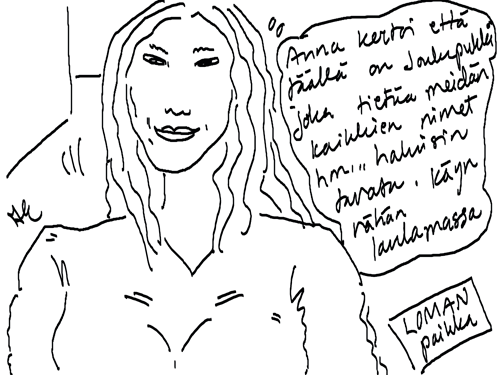 Anna kertoi että
täällä on Joulupukki
joka tietää meidän
kaikkien nimet
hm... haluisin
tavata. Käyn
vähän
laulamassa
LOMAN
paikka